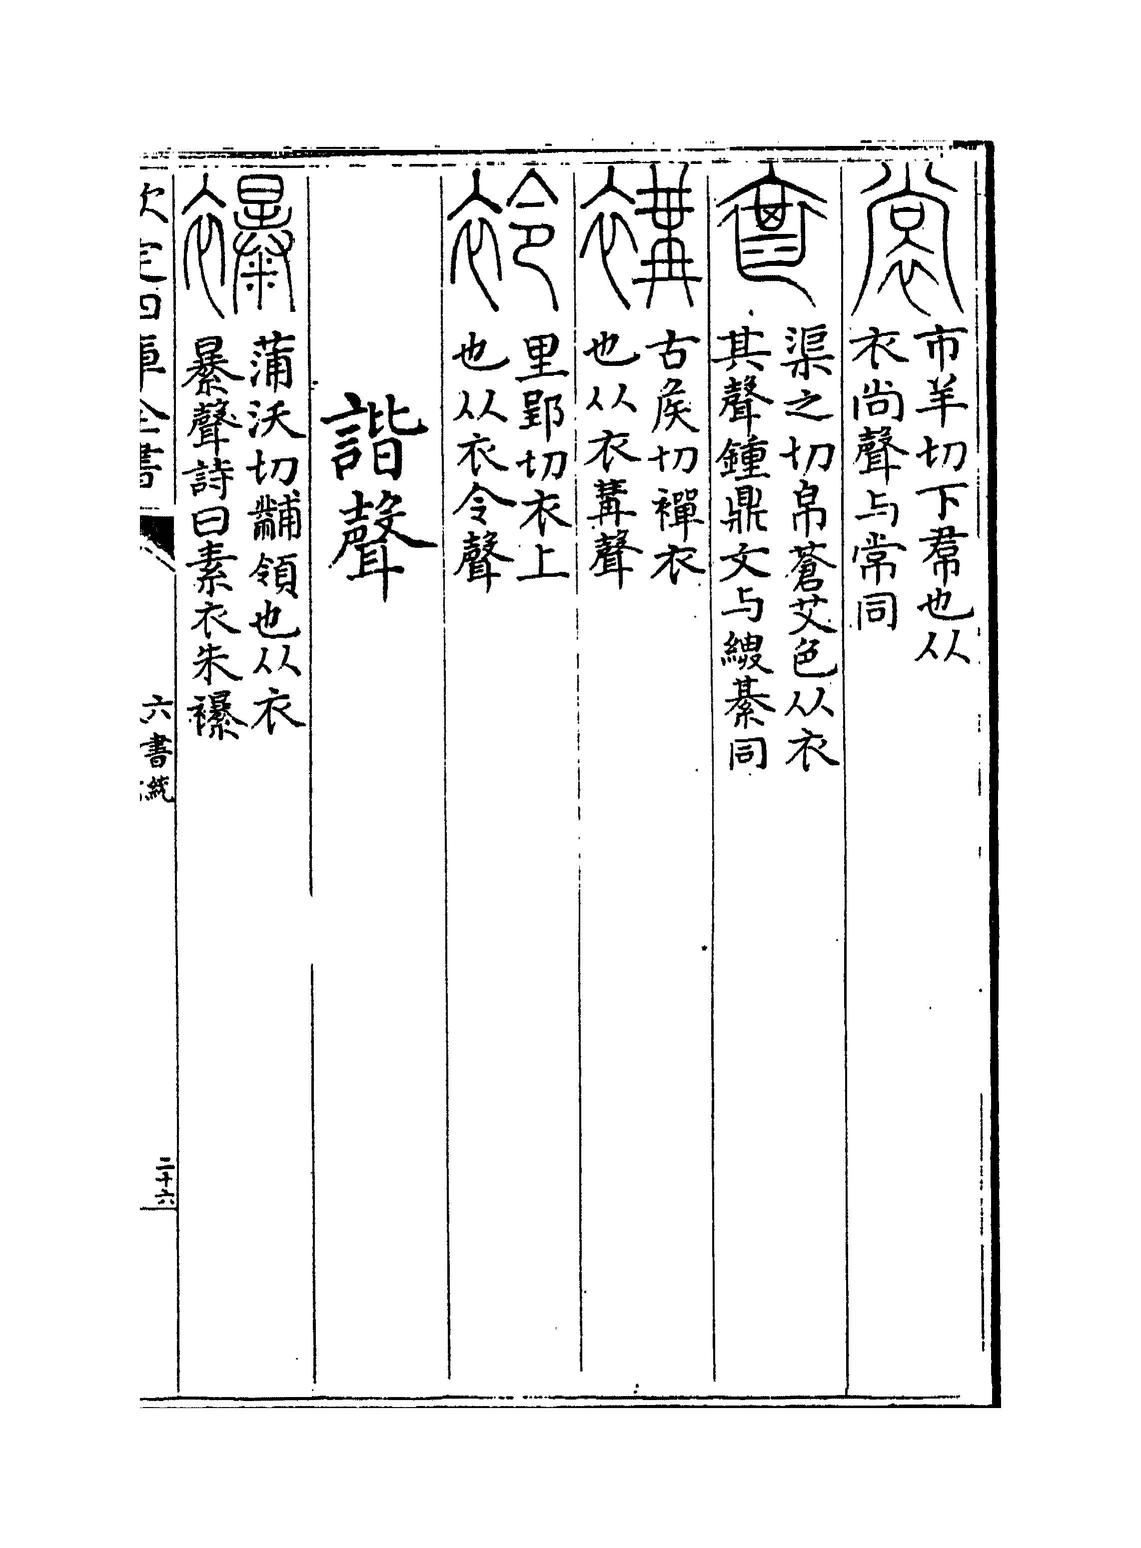 裳
市羊切下帬也从
衣尚聲与常同
渠之切帛蒼艾色从衣
其聲鍾鼎文与綥綦同
褠
古矦切襌衣
也从衣冓聲
袊
里郢切衣上
也从衣令聲
諧聲
襮
蒲沃切黼領也从衣
暴聲詩曰素衣朱襮
欽定四庫全書
六書統
二十六